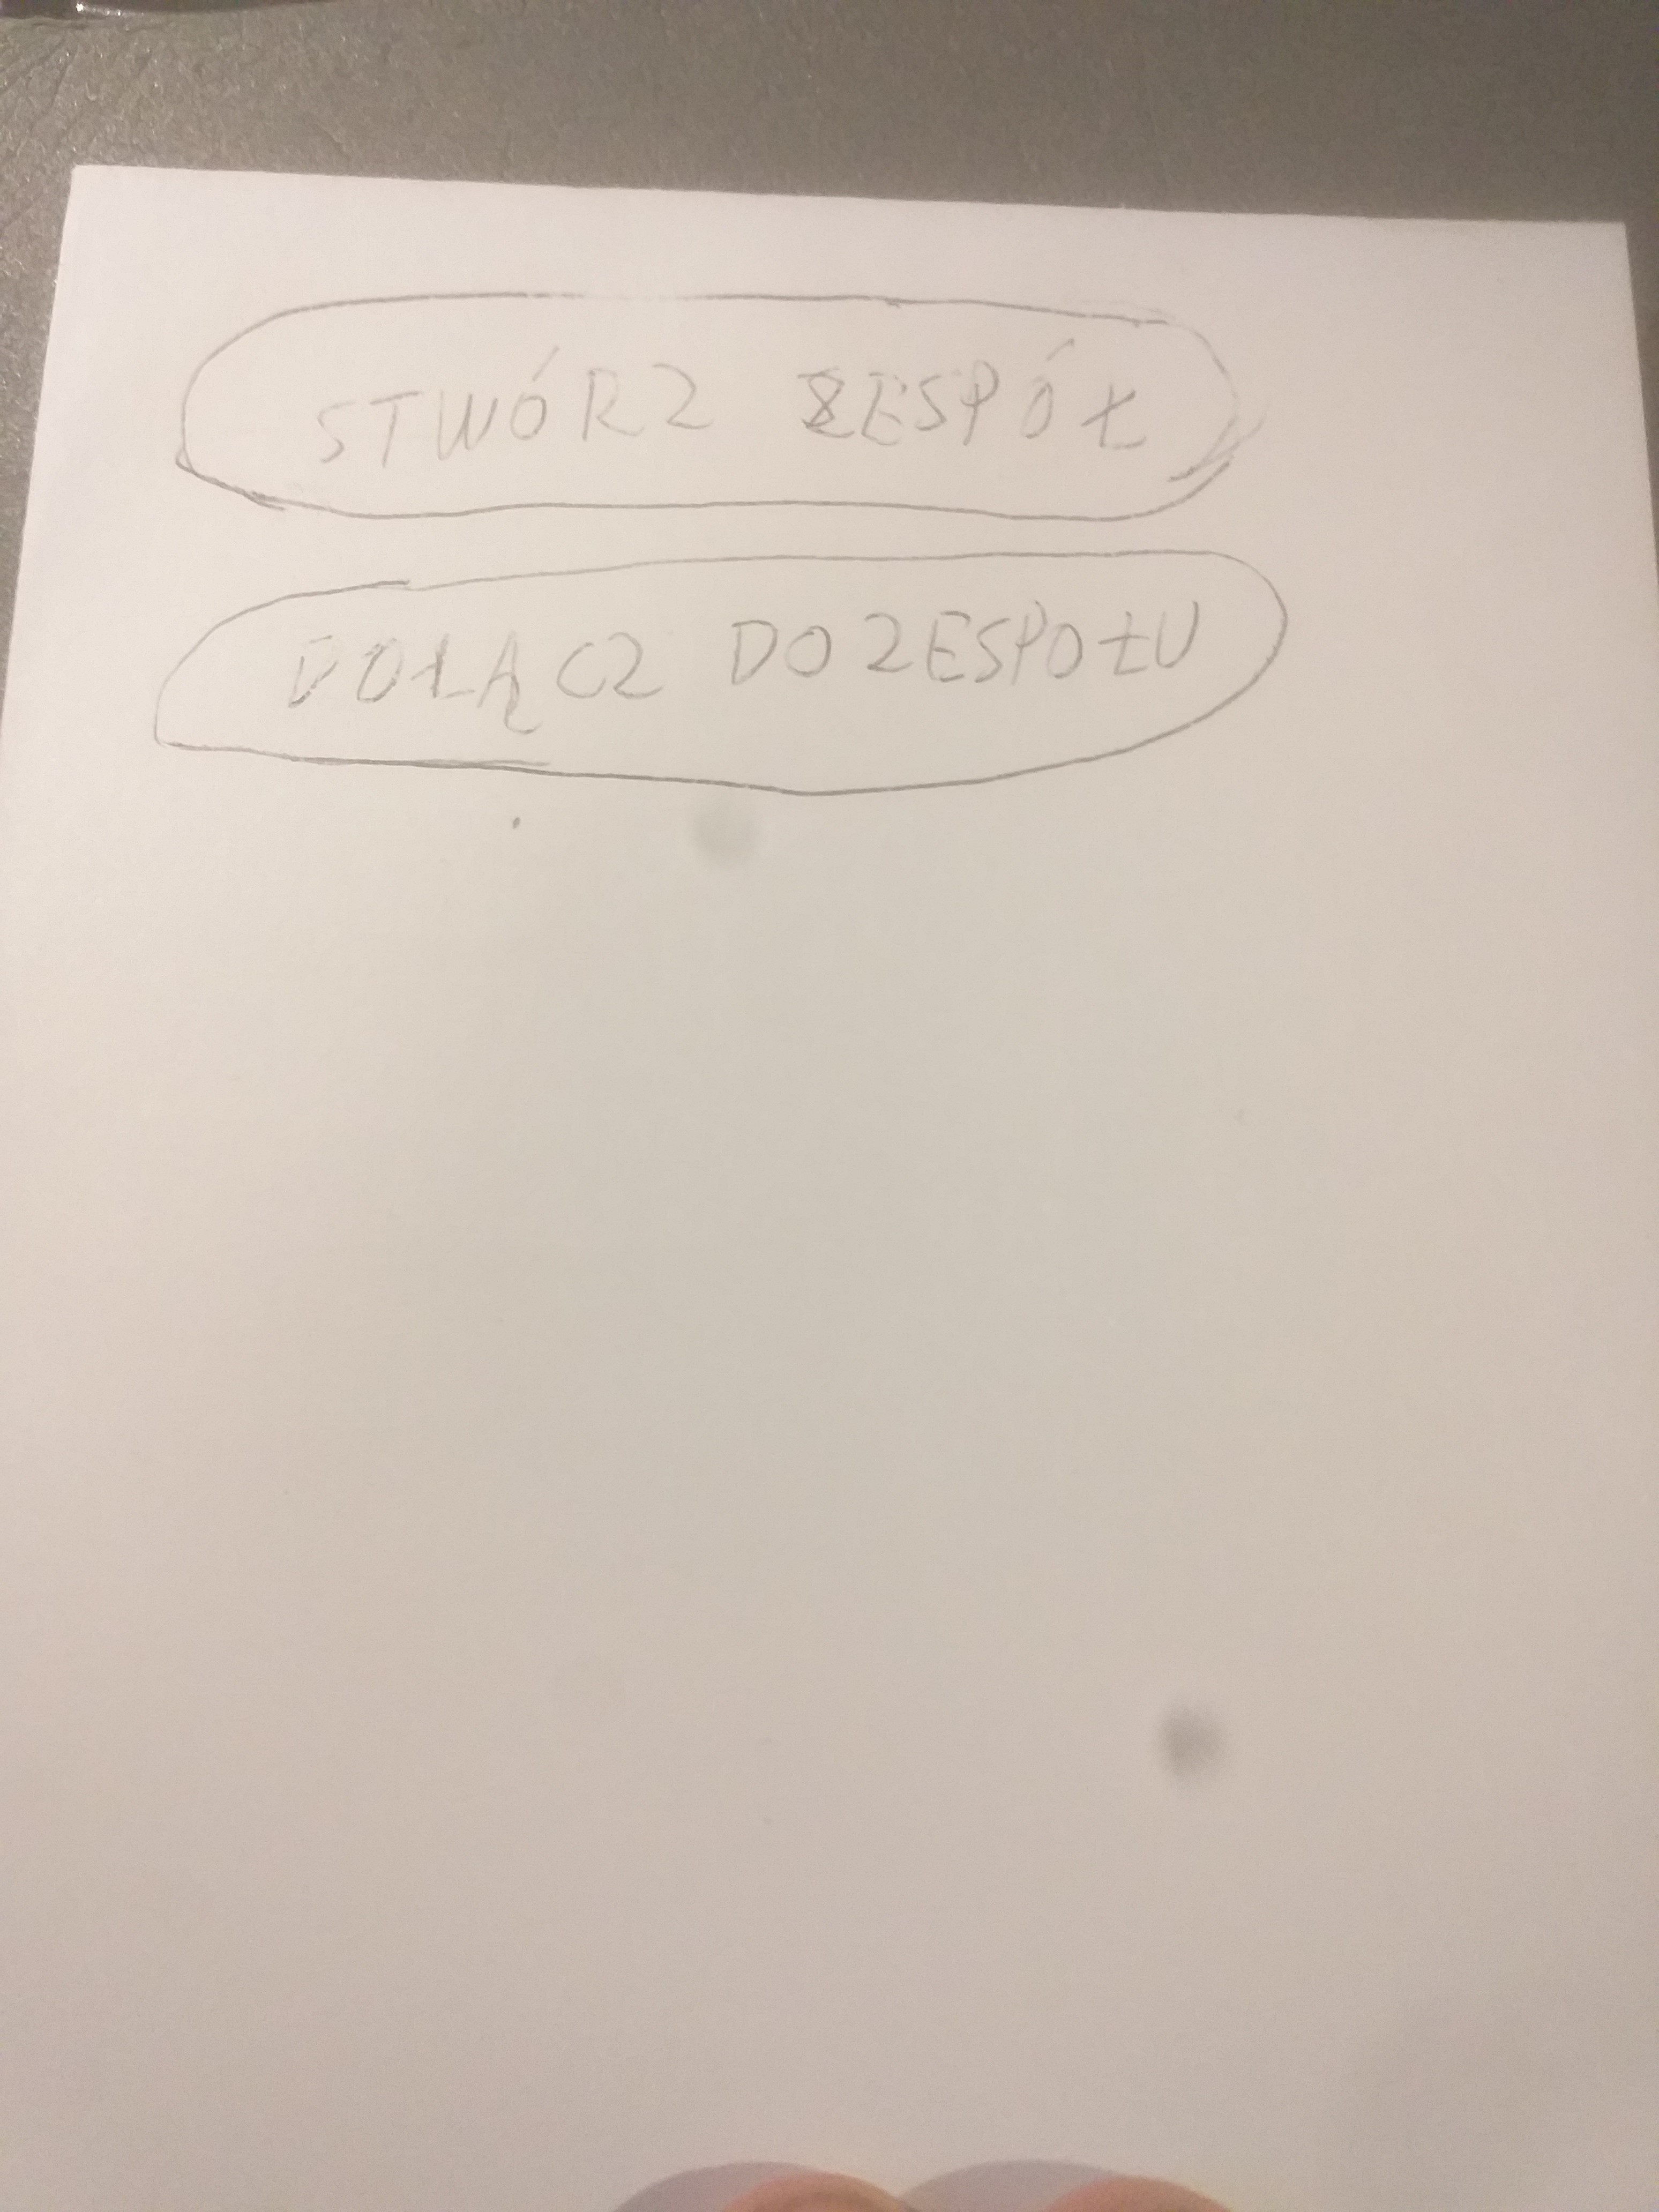 STWÓRZ ZESPÓŁ
DOŁĄCZ DO ZESPOŁU